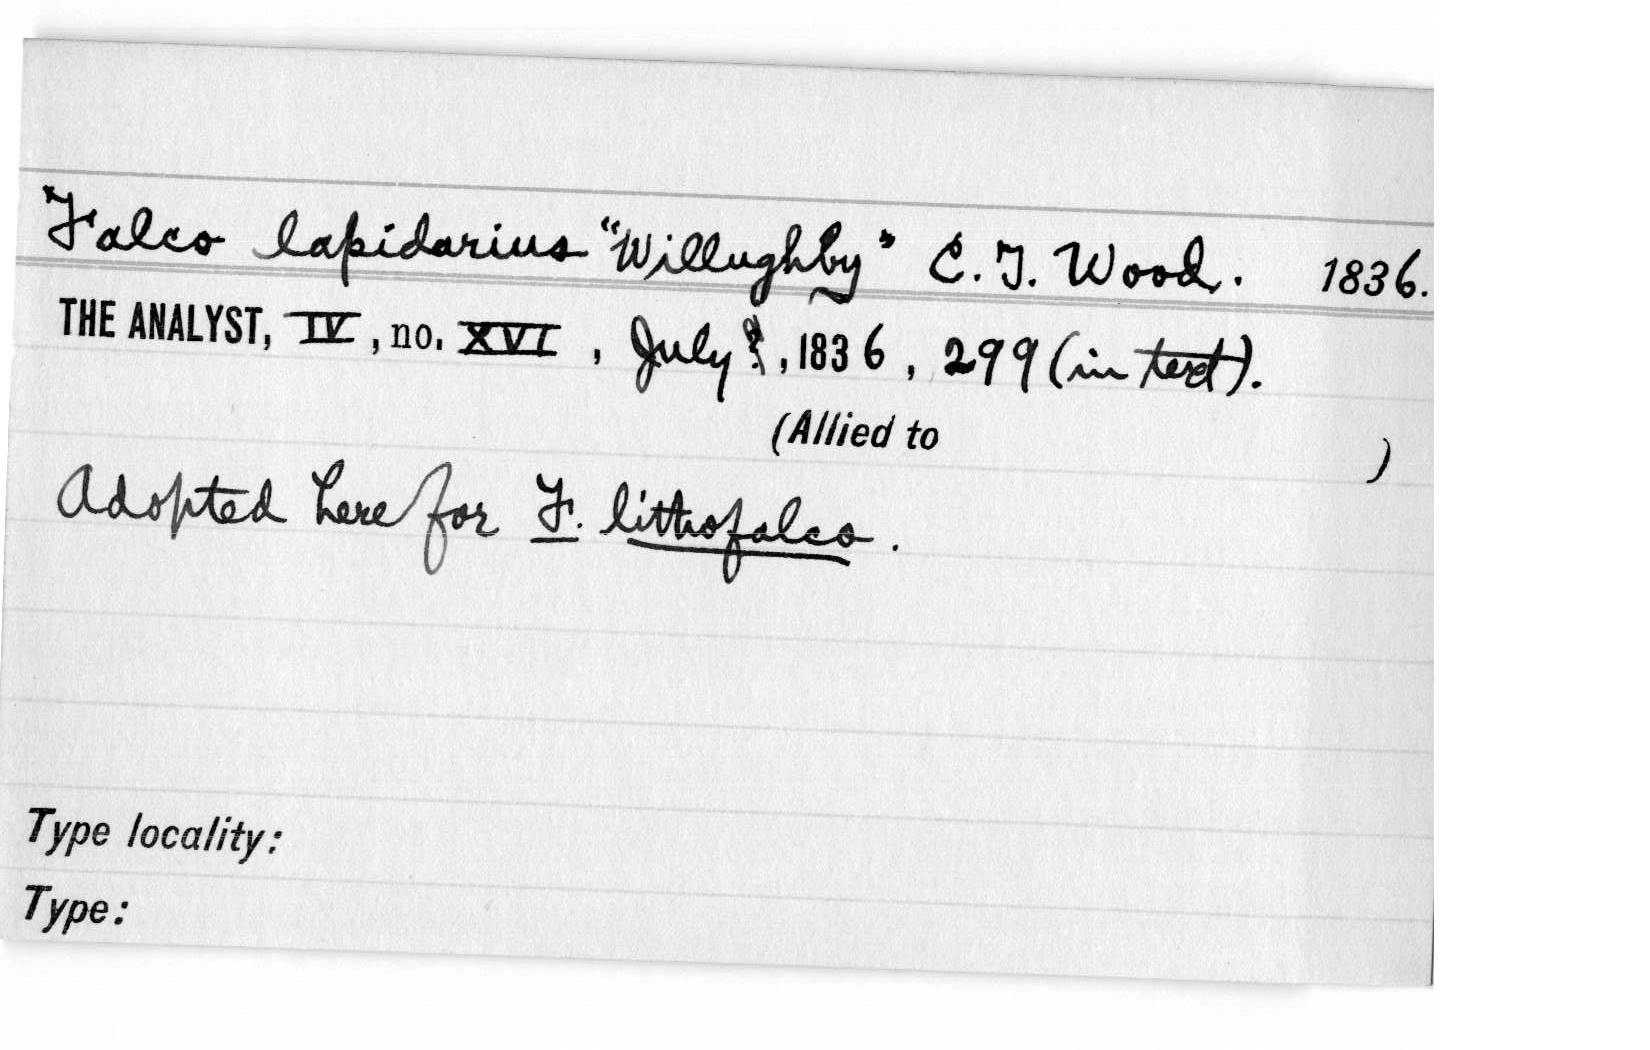 Falco lapidarius "Willughby" C. T. Wood. 1836.
THE ANALYST, IV, no. XVI, July ?, 1836, 299 (in text).
(Allied to )
Adopted here for F. lithofalco.
Type locality:
Type: